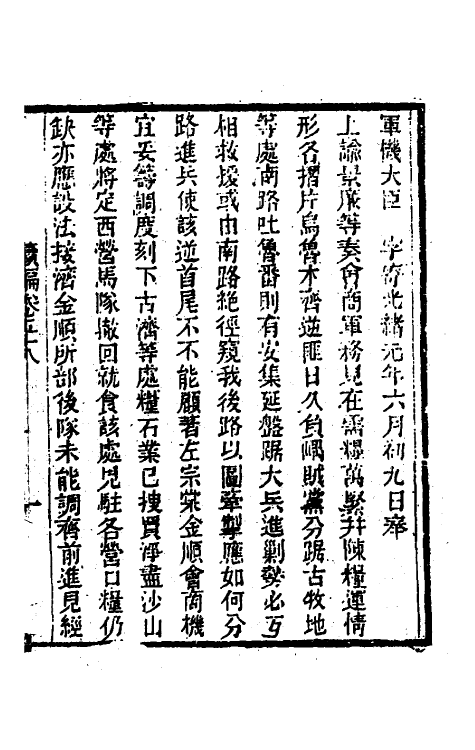 軍機大臣　字寄光緒元年六月初九日奉
上諭景廉等奏會商軍務見在需糧萬緊并陳糧運情
形各摺片烏魯木齊逆匪日久負嵎賊黨分踞古牧地
等處南路吐魯番則有安集延盤踞大兵進剿勢必互
相救援或由南路絶徑窺我後路以圖牽掣應如何分
路進兵使該逆首尾不不能顧著左宗棠金順會商機
宜妥籌調度刻下古濟等處糧石業已搜買淨盡沙山
等處將定西營馬隊撤回就食該處見駐各營口糧仍
缺亦應設法接濟金順所部後隊未能調齊前進見經
續編卷五十八